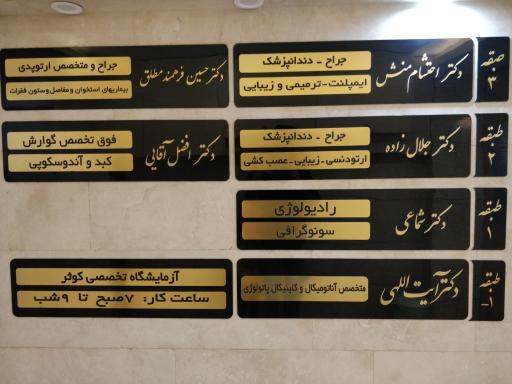 طبقه ۳
دکتر احتشام منش
جراح - دندانپزشک
ایمپلنت-ترمیمی و زیبایی
دکتر حسین فرهمند مطلق
جراح و متخصص ارتوپدی
بیماریهای استخوان و مفاصل وستون فقرات
طبقه ۲
دکتر جلال زاده
جراح - دندانپزشک
ارتودنسی-زیبایی-عصب کشی
دکتر افضل آقایی
فوق تخصص گوارش
کبد و آندوسکوپی
طبقه ۱
دکتر شماعی
رادیولوژی
سونوگرافی
طبقه -۱
دکتر آیت اللهی
متخصص آناتومیکال و کلینیکال پاتولوژی
آزمایشگاه تخصصی کوثر
ساعت کار: ۷صبح تا ۹شب